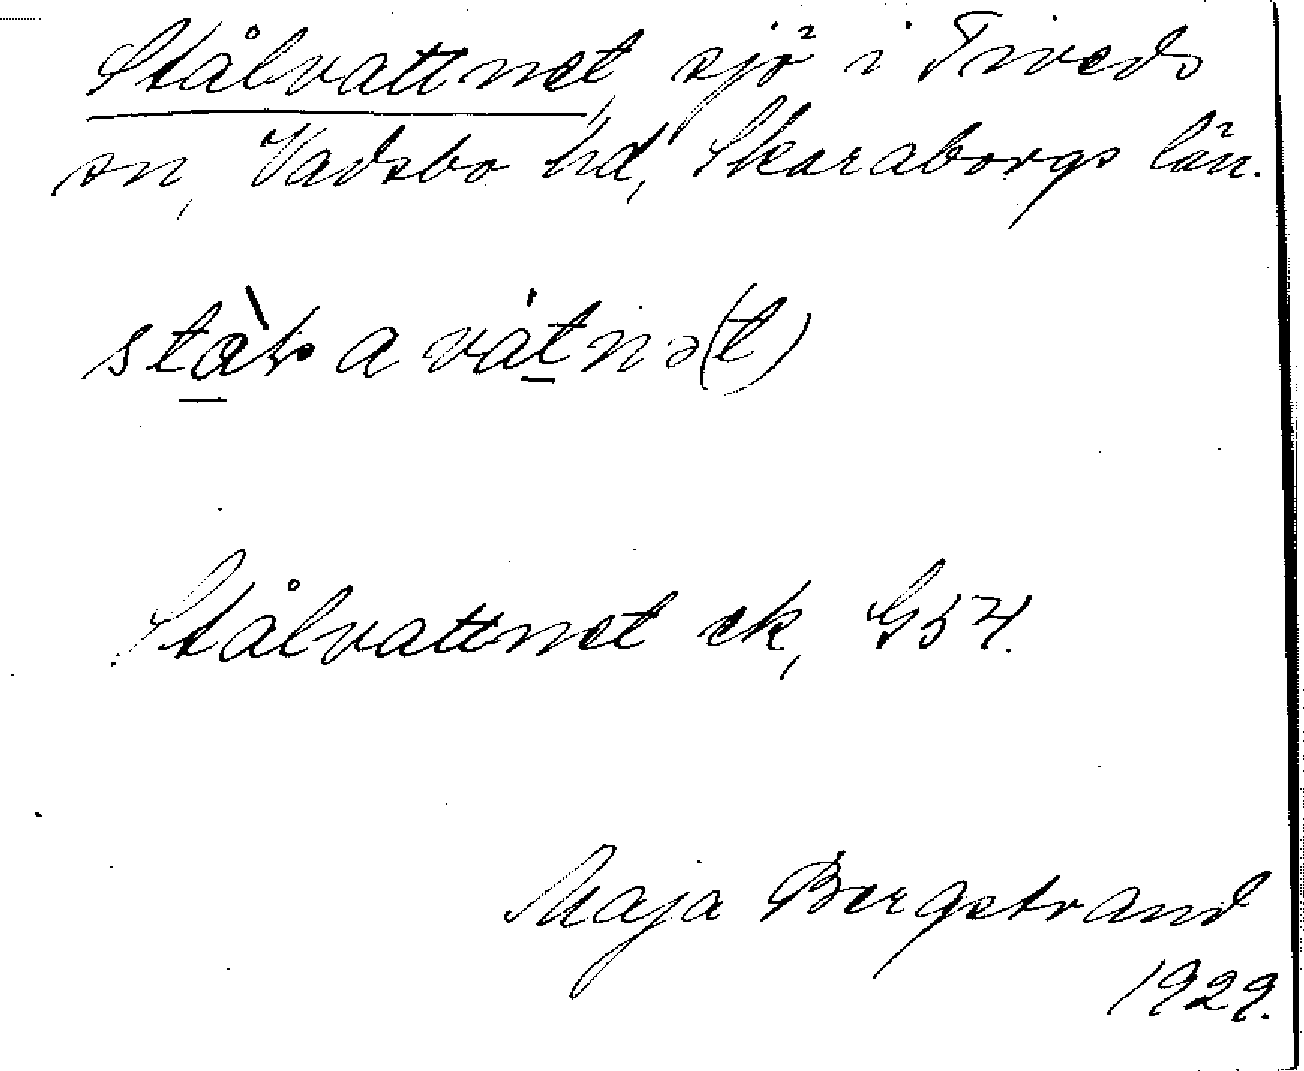 Stålvattnet, sjö i Tiveds
sn, Vadsbo hd, Skaraborgs län.
vátnə(t)
Stålvattnet ek, G54.
Maja Bergstrand
1929.